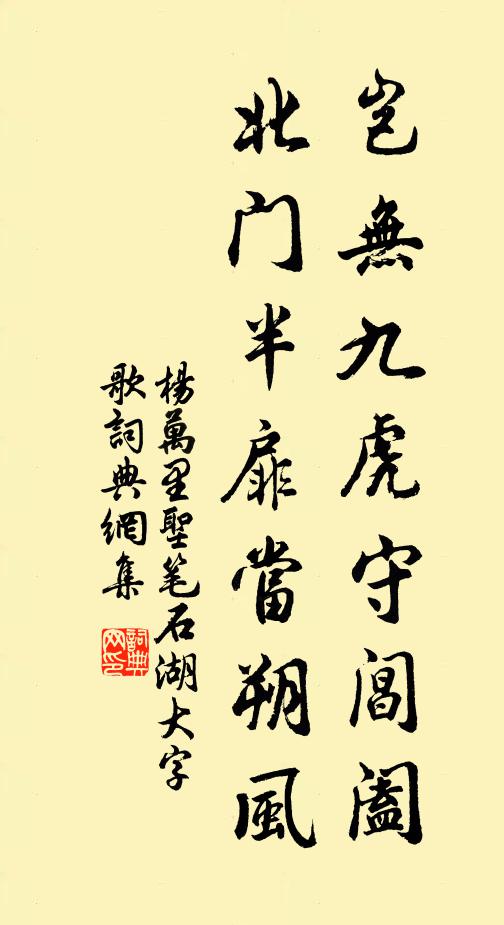 豈無九虎守閶闔
北门半扉當朔風
楊萬里聖笔石湖大字
歌詞典網集
詞典
网印